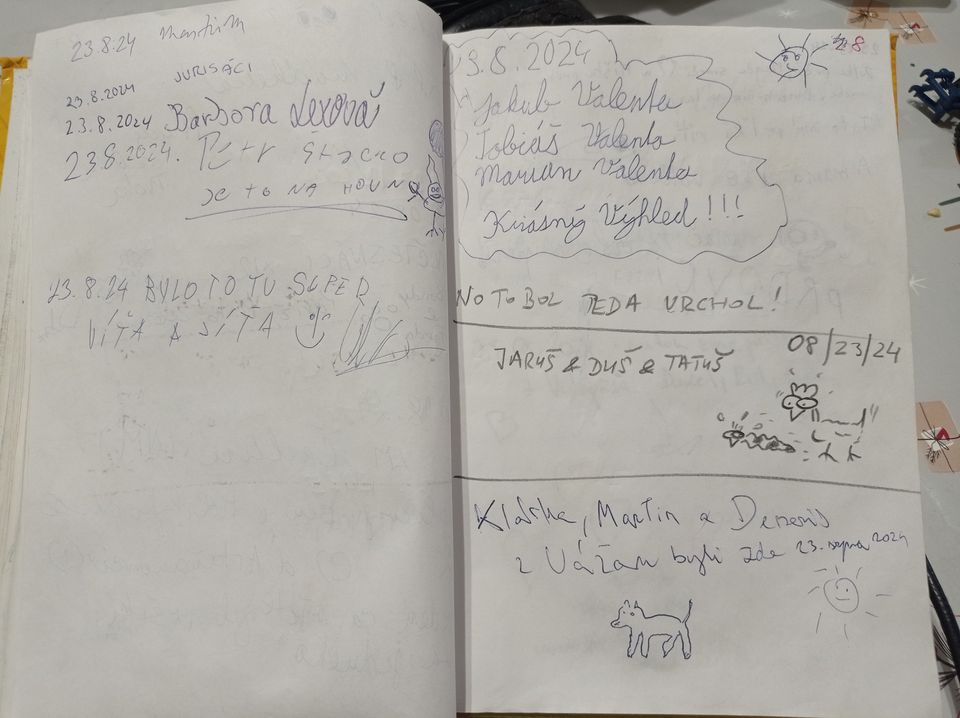 23.8.24 Martin
23.8.2024 JURISÁCI
23.8.2024 Barbora
23.8.2024. Petr
JE TO NA HOVN
23.8.24 BYLO TO TU SUPER
VÍŤA A SÍŤA
23.8.2024
Jakub Valenta
Tobiáš Valenta
Marian Valenta
Krásný Výhled!!!
NO TO BOL TEDA VRCHOL!
JARUŠ & DUŠ & TATUŠ 08/23/24
Klárka, Martin a
z Vážan byli zde 23. srpna 2024